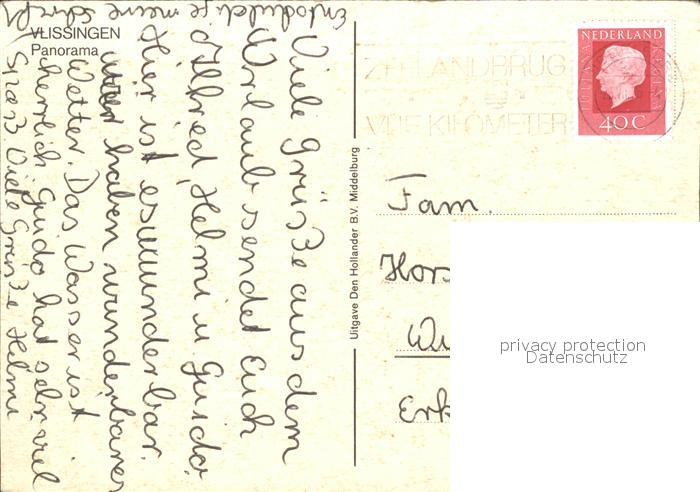 VLISSINGEN
Panorama
Viele Grüsse aus dem
Urlaub sendet Euch
Alfred, Helmi u Guido
Hier ist es wunderbar.
wir haben wunderbares
Wetter. Das Wasser ist
herrlich. Guido hat sehr viel
Spaß. Viele Grüße Helmi
Entschuldige meine Schrift
Uitgave Den Hollander B.V. Middelburg
ZEELANDBRUG
VIJF KILOMETER
NEDERLAND
JULIANA REGINA
40 C
Fam.
Hors
Wu
Erk
privacy protection
Datenschutz